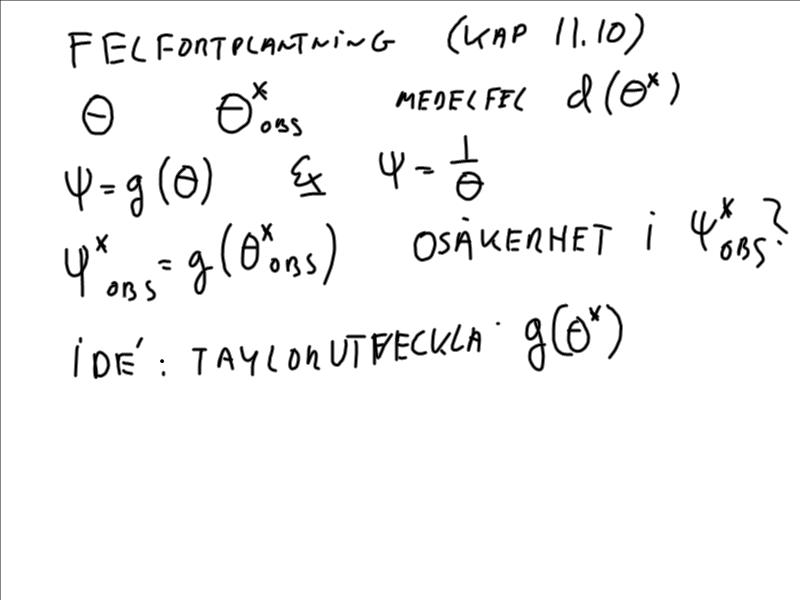 FELFORTPLANTNING (KAP 11.10)
θ θ*OBS MEDELFEL d(θ*)
ψ = g(θ) Ex ψ = 1/θ
ψ*OBS = g(θ*OBS) OSÄKERHET i ψ*OBS?
IDÉ: TAYLORUTVECKLA g(θ*)